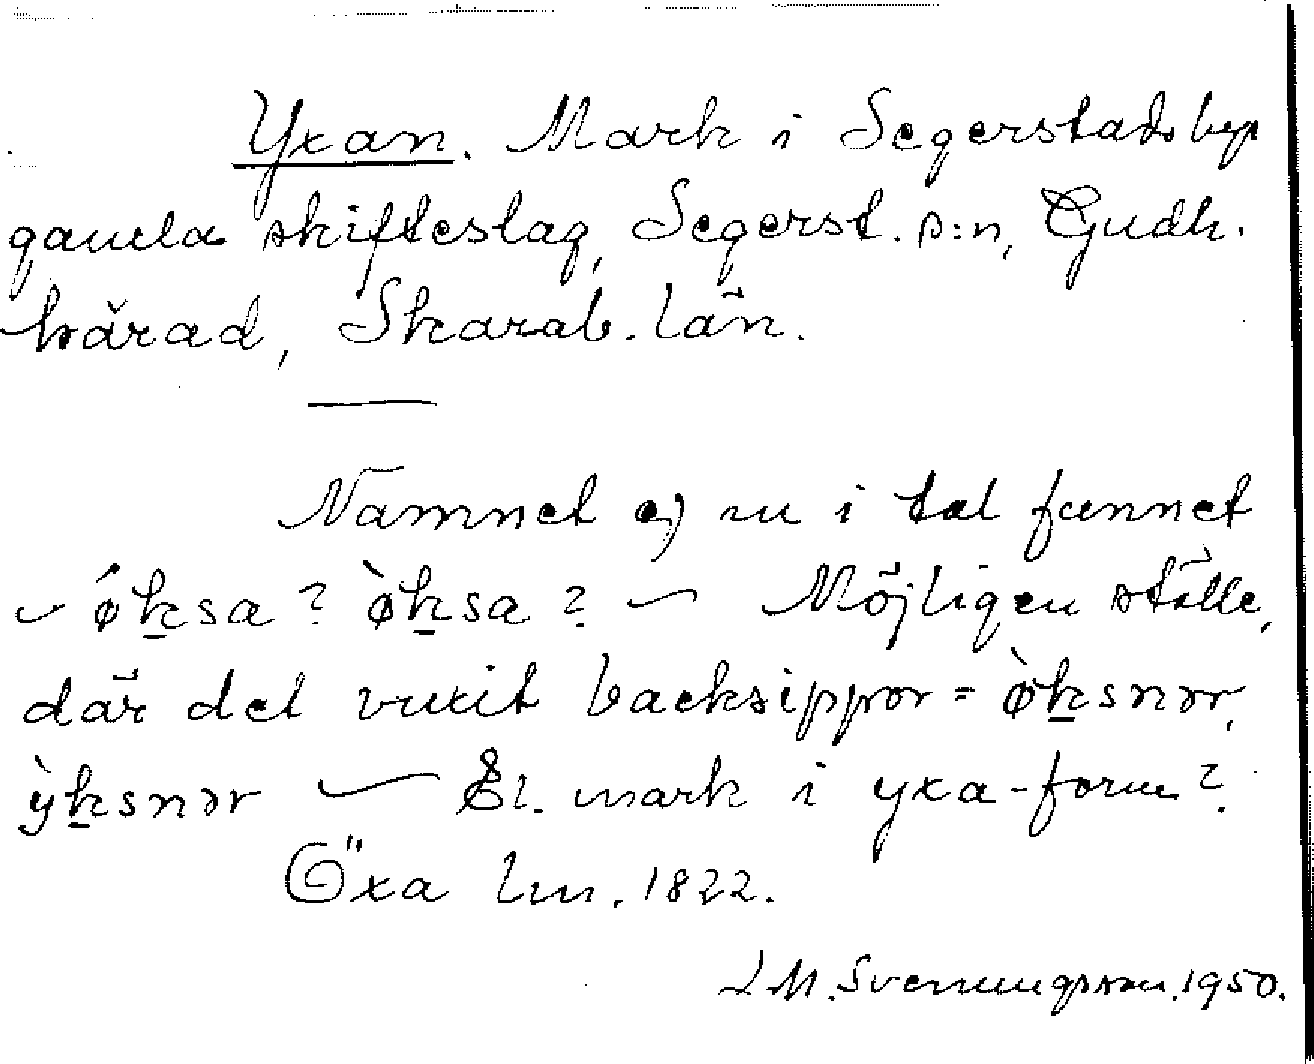 Yxan. Mark i Segerstads bys
gamla skifteslag, Segerst. s:n, Gudh.
härad, Skarab. län.
Namnet ej nu i tal funnet
– ǿk̲sa? ø̀k̲sa? – Möjligen ställe,
där det vuxit backsippor = ø̀k̲snər,
ỳk̲snər – El. mark i yxa-form?
Öxa lm. 1822.
J M. Svenungsson. 1950.